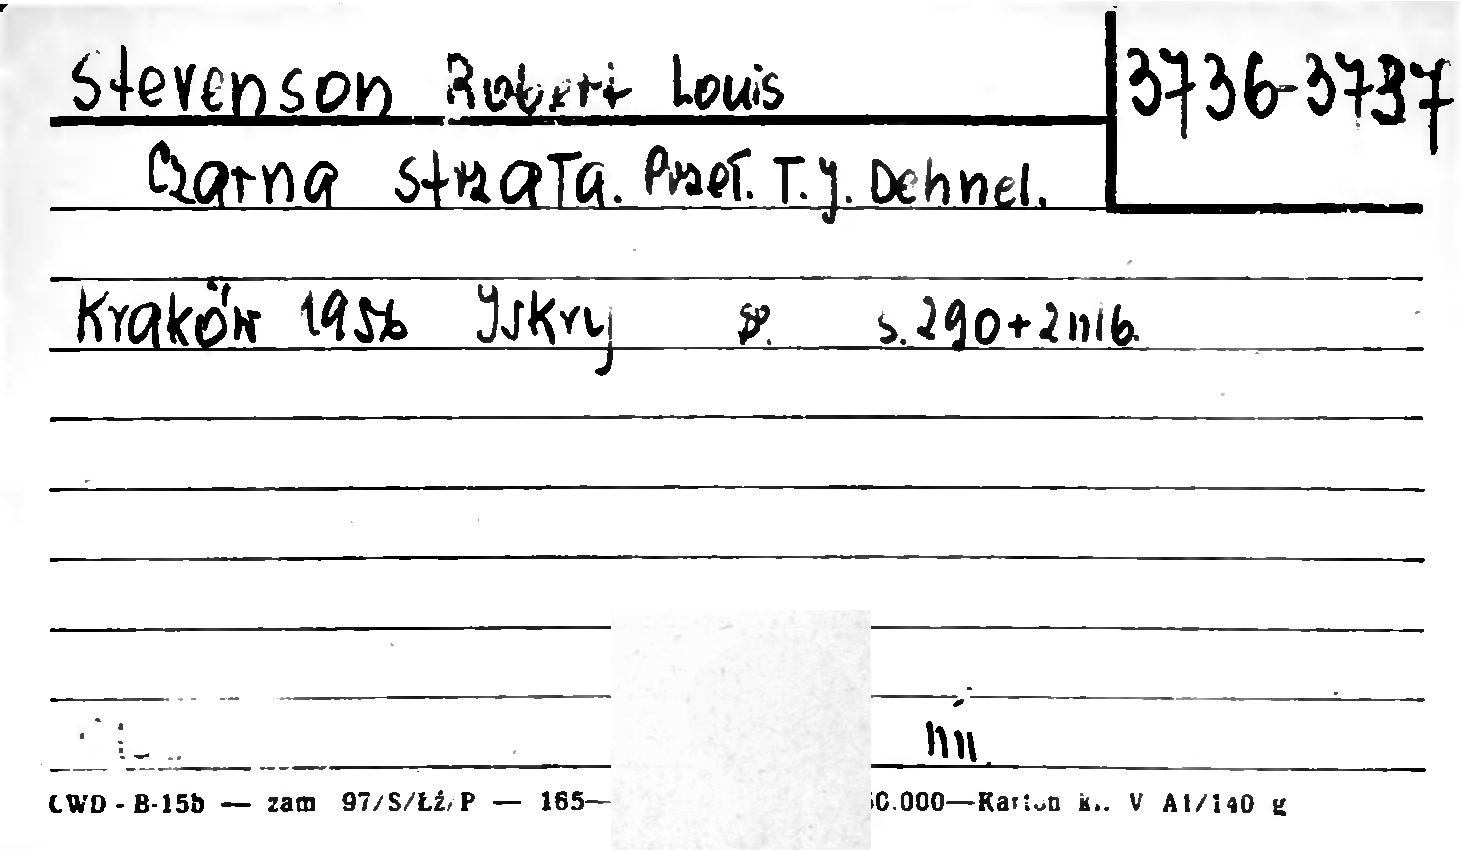 Stevenson Robert Louis 3736-3737
Czarna strzała. Przeł. T. J. Dehnel.
Kraków 1956 Iskry 8. s. 290+2nlb.
CWD - B-15b — zam 97/S/Łż/P — 165— 50.000—Karton kl. V A1/140 g